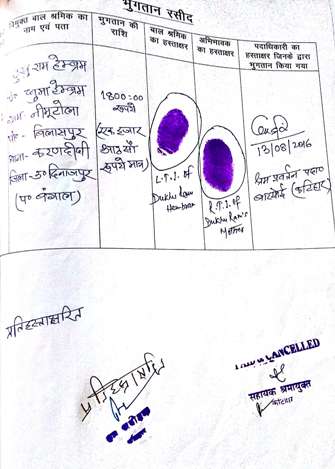 भुगतान रसीद
विमुक्त बाल श्रमिक का नाम एवं पता
भुगतान की राशि
बाल श्रमिक का हस्ताक्षर
अभिभावक का हस्ताक्षर
पदाधिकारी का हस्ताक्षर जिनके द्वारा भुगतान किया गया
राम हेम्ब्रम
हेम्ब्रम
नीमटोला
विलासपुर
करणदीघी
जिला- उ० दिनाजपुर
(प० बंगाल)
1800=00
रूपये
(एक हजार
आठ सौ
रूपये मात्र)
L.T.I. of
Dukhu Ram
Hembram
R.T.I. of
Dukhu Ram's
Mother
13/08/2016
श्रम प्रवर्तन पदा०
(कटिहार)
प्रतिहस्ताक्षरित
प्रतिहस्ताक्षरित
CANCELLED
सहायक श्रमायुक्त
कटिहार